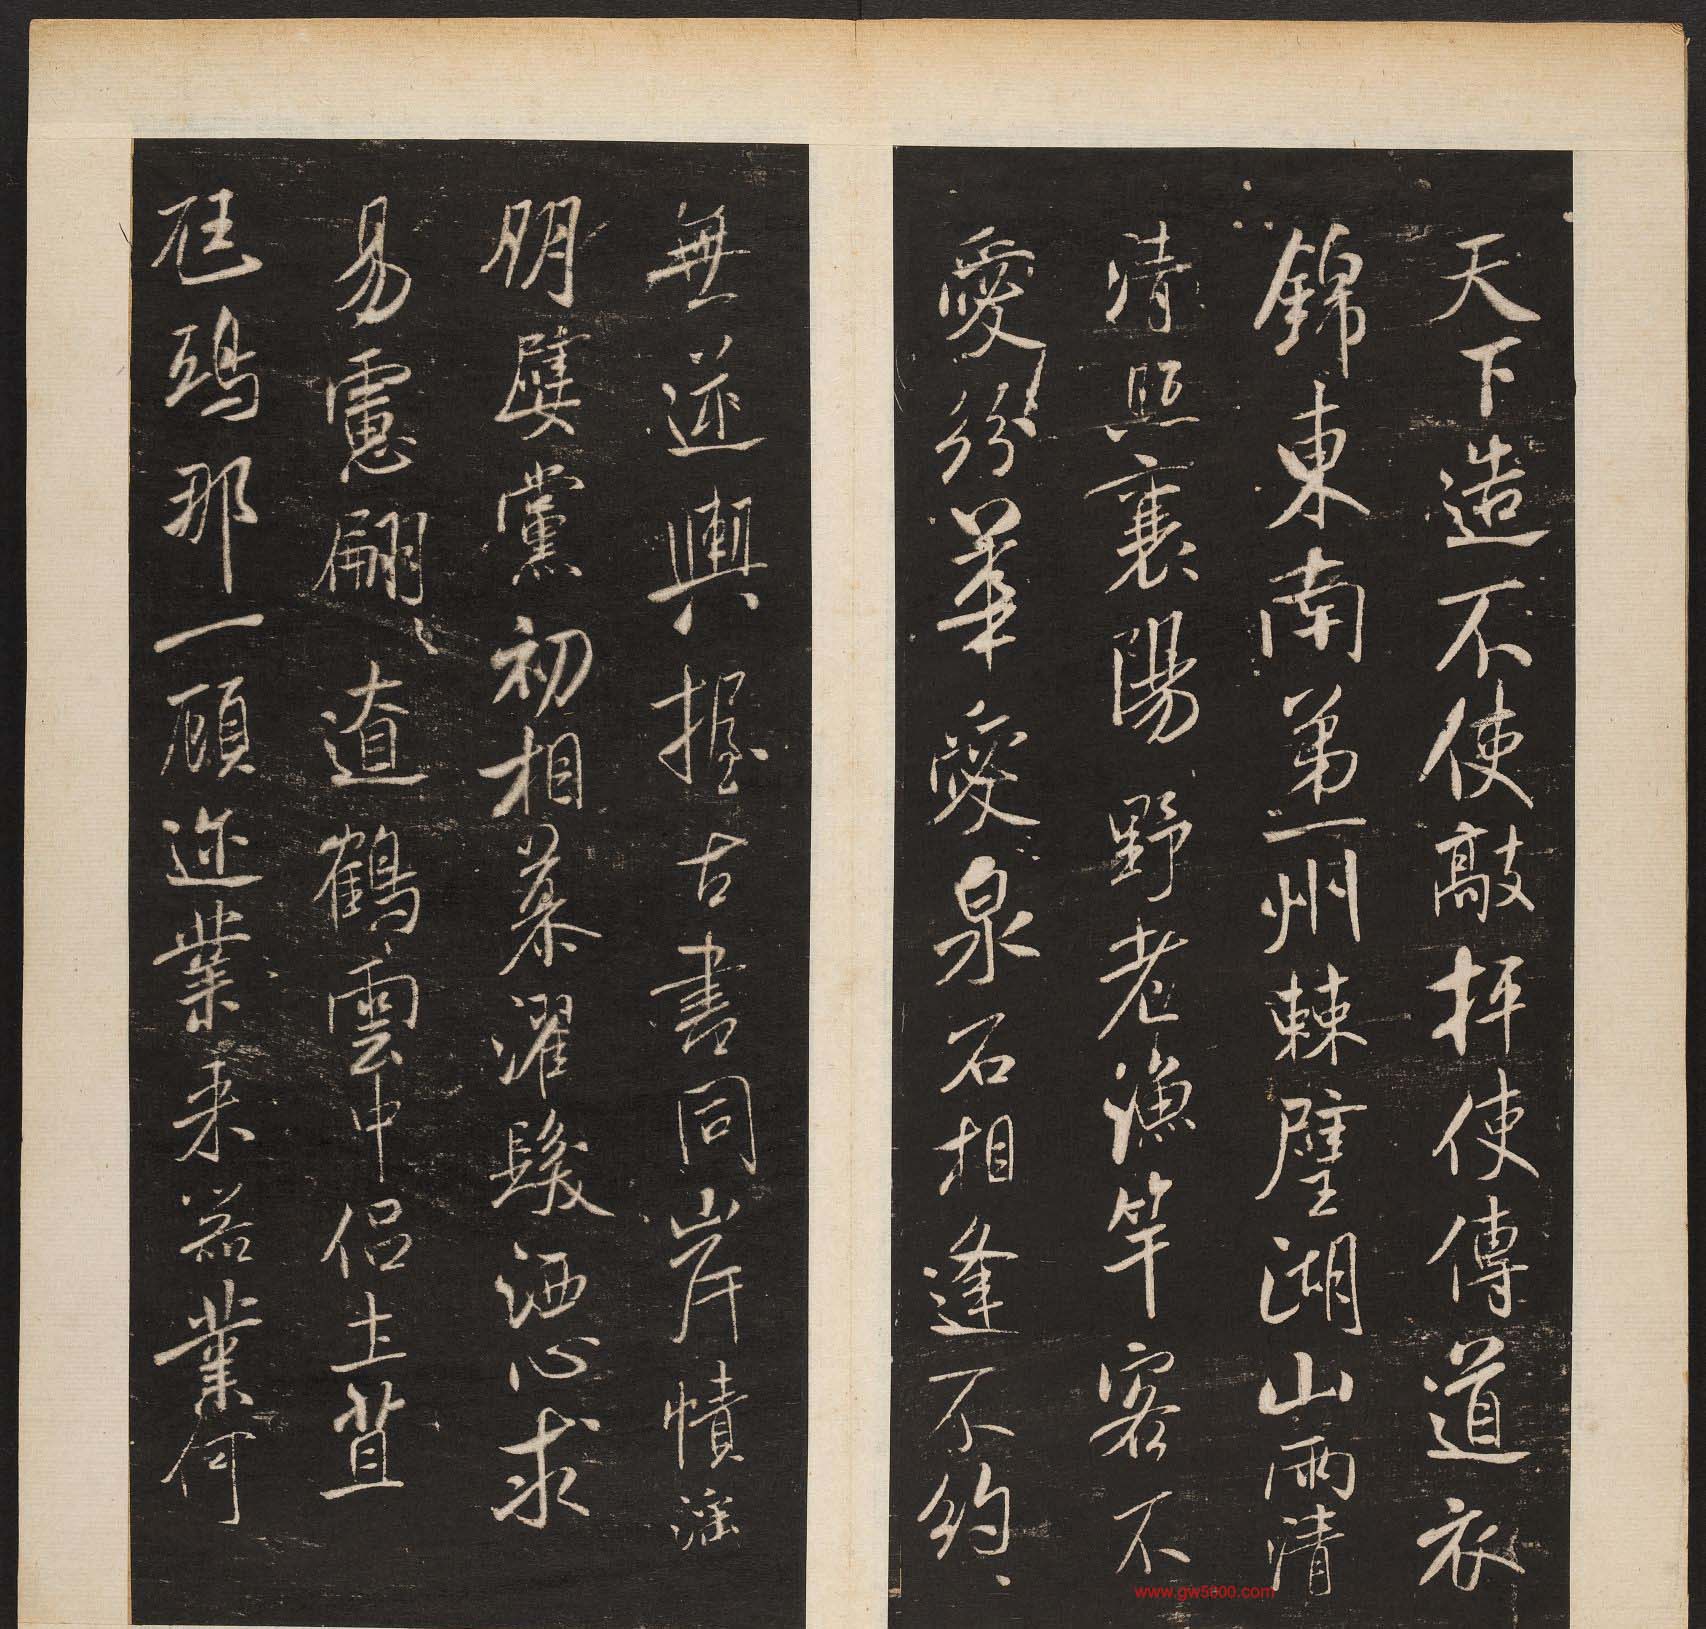 天下造不使敲抨使傳道衣
錦東南第一州棘璧湖山兩清
清照襄陽野老漁竿客不
愛紛華愛泉石相逢不約、
無逆輿握古書同岸幘淫
朋嬖黨初相慕濯髮洒心求
易慮翩、遼鶴雲中侶土苴
尫鴟那一顧迩業来器業何
www.gw5000.com